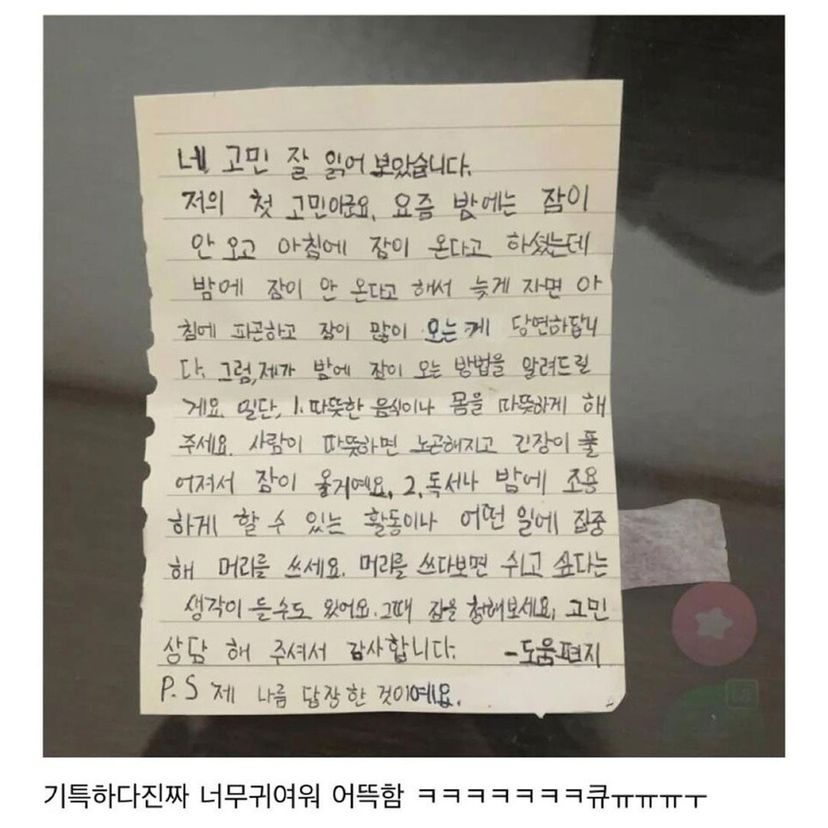 네 고민 잘 읽어 보았습니다.
저의 첫 고민이군요. 요즘 밤에는 잠이
안 오고 아침에 잠이 온다고 하셨는데
밤에 잠이 안 온다고 해서 늦게 자면 아
침에 피곤하고 잠이 많이 오는게 당연하답니
다. 그럼, 제가 밤에 잠이 오는 방법을 알려드릴
게요. 일단, 1. 따뜻한 음식이나 몸을 따뜻하게 해
주세요. 사람이 따뜻하면 노곤해지고 긴장이 풀
어져서 잠이 올거예요. 2. 독서나 밤에 조용
하게 할 수 있는 활동이나 어떤 일에 집중
해 머리를 쓰세요. 머리를 쓰다보면 쉬고 싶다는
생각이 들수도 있어요. 그때 잠을 청해보세요. 고민
상담 해 주셔서 감사합니다. -도움편지
P.S 제 나름 답장한 것이예요.
기특하다진짜 너무귀여워 어뜩함 ㅋㅋㅋㅋㅋㅋㅋ큐ㅠㅠㅠㅜ